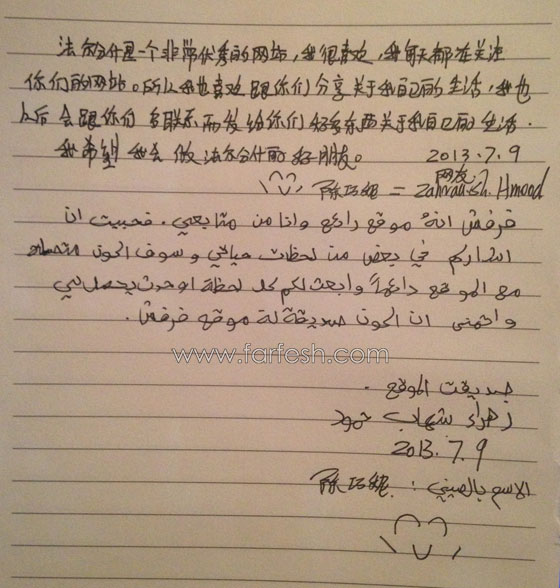 法尔分什是一个非常优秀的网站，我很喜欢，我每天都在关注
你们的网站。所以我也喜欢跟你们分享关于我自己的生活，我也
以后会跟你们多联系而发给你们好多东西关于我自己的生活.
我希望我会做法尔分什的好朋友。 2013.7.9
网友:
陈巧妮 = Zahraa.sh. Hmood
فرفش انهُ موقع رائع وانا من متابعي. فحبيت ان
اشارکم في بعض من لحظات حياتي وسوف اكون متصله
مع الموقع دائماً وابعث لكم كل لحظة او حدث يحصل لي
واتمنى ان اكون صديقة لة موقع فرفش.
www.farfesh.com
صديقت الموقع.
زهراء شهاب حمود
2013.7.9
الاسم بالصيني: 陈巧妮